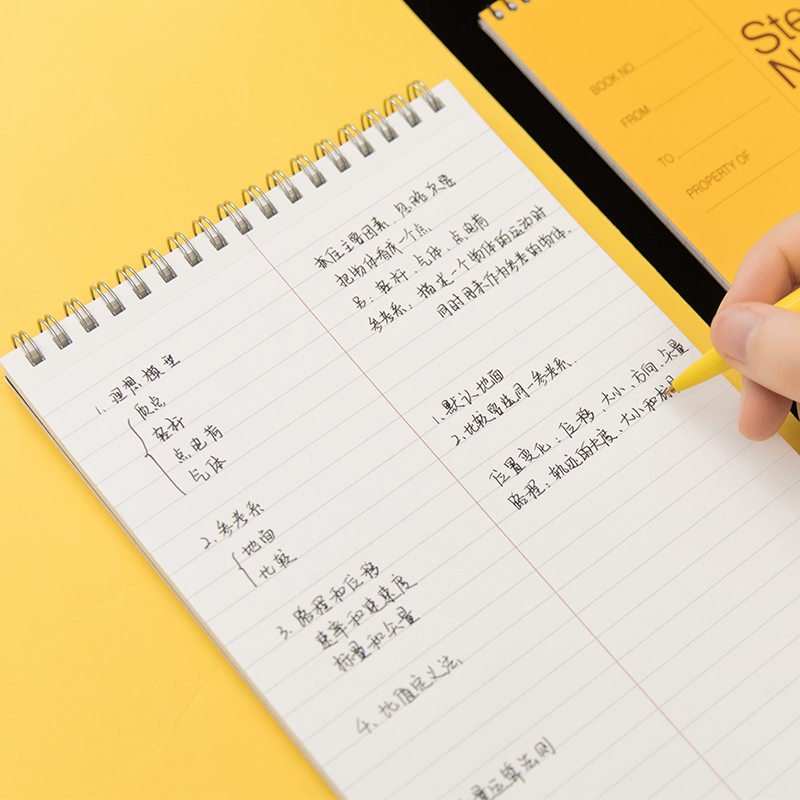 1、理想模型
质点
轻杆
点电荷
气体
2、参考系
地面
比较
3、路程和位移
速率和速度
标量和矢量
4、比值定义法
量运算法则
抓住主要因素,忽略次要
把物体看成一个点
另:轻杆、气体、点电荷
参考系:描述一个物体的运动时
同时用来作为参考的物体.
1、默认地面
2、比较要选同一参考系.
位置变化:位移、大小、方向、矢量
路程:轨迹的长度、大小和标
Ste
N
BOOK NO.
FROM
TO
PROPERTY OF